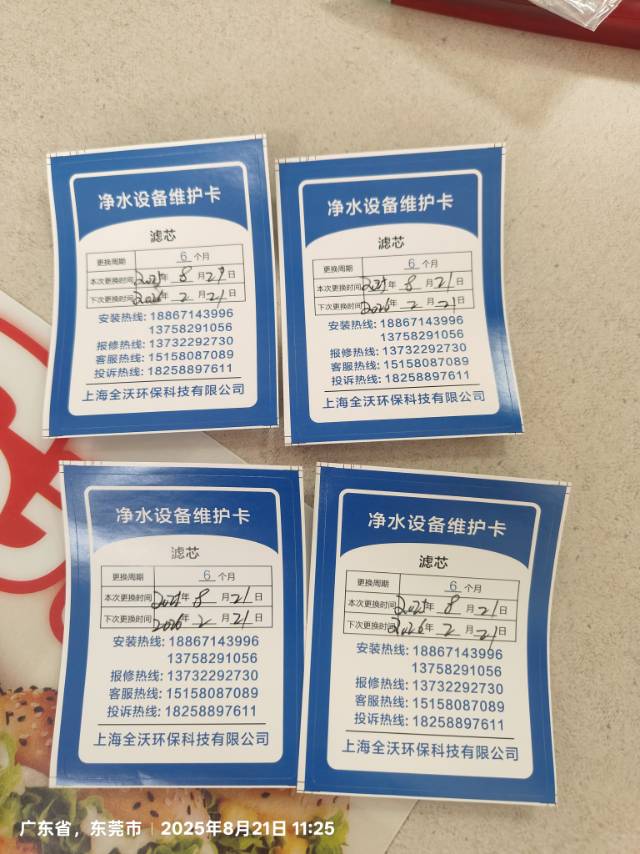 净水设备维护卡
滤芯
更换周期 6 个月
本次更换时间 2025年 8 月 21 日
下次更换时间 2026年 2 月 21 日
安装热线: 18867143996
13758291056
报修热线: 13732292730
客服热线: 15158087089
投诉热线: 18258897611
上海全沃环保科技有限公司
净水设备维护卡
滤芯
更换周期 6 个月
本次更换时间 2025年 8 月 21 日
下次更换时间 2026年 2 月 21 日
安装热线: 18867143996
13758291056
报修热线: 13732292730
客服热线: 15158087089
投诉热线: 18258897611
上海全沃环保科技有限公司
净水设备维护卡
滤芯
更换周期 6 个月
本次更换时间 2025年 8 月 21 日
下次更换时间 2026年 2 月 21 日
安装热线: 18867143996
13758291056
报修热线: 13732292730
客服热线: 15158087089
投诉热线: 18258897611
上海全沃环保科技有限公司
净水设备维护卡
滤芯
更换周期 6 个月
本次更换时间 2025年 8 月 21 日
下次更换时间 2026年 2 月 21 日
安装热线: 18867143996
13758291056
报修热线: 13732292730
客服热线: 15158087089
投诉热线: 18258897611
上海全沃环保科技有限公司
广东省，东莞市 | 2025年8月21日 11:25